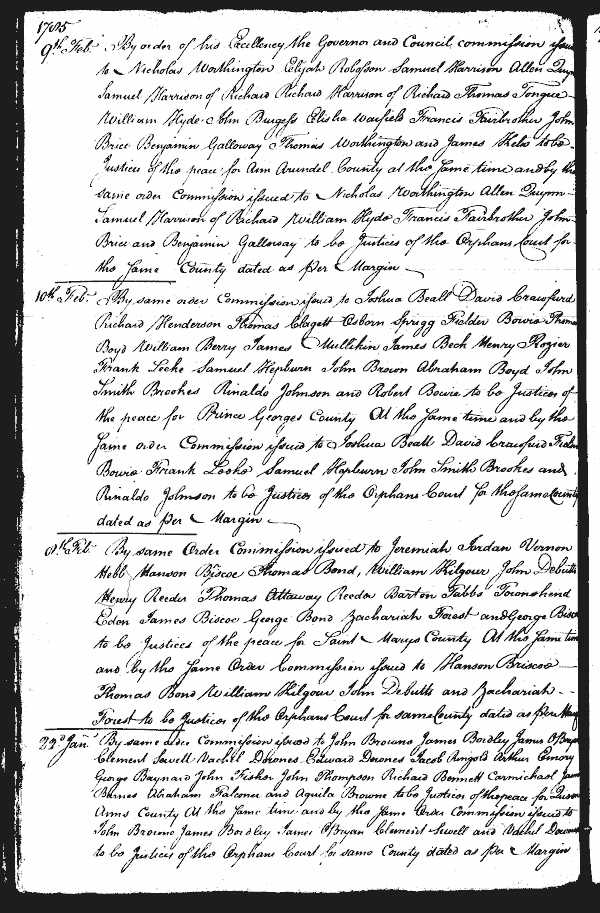 1785
9th Feb. By order of his Excellency the Governor and Council commission issued
to Nicholas Worthington Elijah Robosson Samuel Harrison Allen Quyn
Samuel Harrison of Richard Richard Harrison of Richard Thomas Tongue
William Hyde John Burgess Elisha Warfield Francis Fairbrother John
Brice Benjamin Galloway Thomas Worthington and James to be
Justices of the peace for Ann Arundel County at the same time and by the
same order Commission issued to Nicholas Worthington Allen Quynn
Samuel Harrison of Richard William Hyde Francis Fairbrother John
Brice and Benjamin Galloway to be Justices of the Orphans Court for
the same County dated as per Margin
10th Feb. By same order Commission issued to Joshua Beall David Craufurd
Richard Henderson Thomas Clagett Osborn Sprigg Fielder Bowie Thomas
Boyd William Berry James Mullikin James Beck Henry Rozier
Frank Leeke Samuel Hepburn John Brown Abraham Boyd John
Smith Brookes Rinaldo Johnson and Robert Bowie to be Justices of
the peace for Prince Georges County At the same time and by the
same order Commission issued to Joshua Beall David Craufurd Fielder
Bowie Frank Leeke Samuel Hepburn John Smith Brookes and
Rinaldo Johnson to be Justices of the Orphans Court for the same County
dated as per Margin
8th Feb. By same Order Commission issued to Jeremiah Jordan Vernon
Hebb Hanson Biscoe Thomas Bond, William Kilgour John Debutts
Henry Reeder Thomas Attaway Reeder Barton Tabbs Townshend
Eden James Biscoe George Bond Zachariah Forest and George Biscoe
to be Justices of the peace for Saint Marys County At the same time
and by the same Order Commission issued to Hanson Briscoe
Thomas Bond William Kilgour John Debutts and Zachariah
Forest to be Justices of the Orphans Court for same County dated as per Marg
22d Jany By same order Commission issued to John Browne James Bordley James O Bryan
Clement Sewell Vachel Downes Edward Downes Jacob Ringold Arthur Emory
George Baynard John Fisher John Thompson Richard Bennett Carmichael James
Barnes Abraham Falconer and Aquila Browne to be Justices of the peace for Queen
Anns County At the same time and by the same Order Commission issued to
John Browne James Bordley James O'Bryan Clement Sewell and Vachel Downes
to be Justices of the Orphans Court for same County dated as per Margin